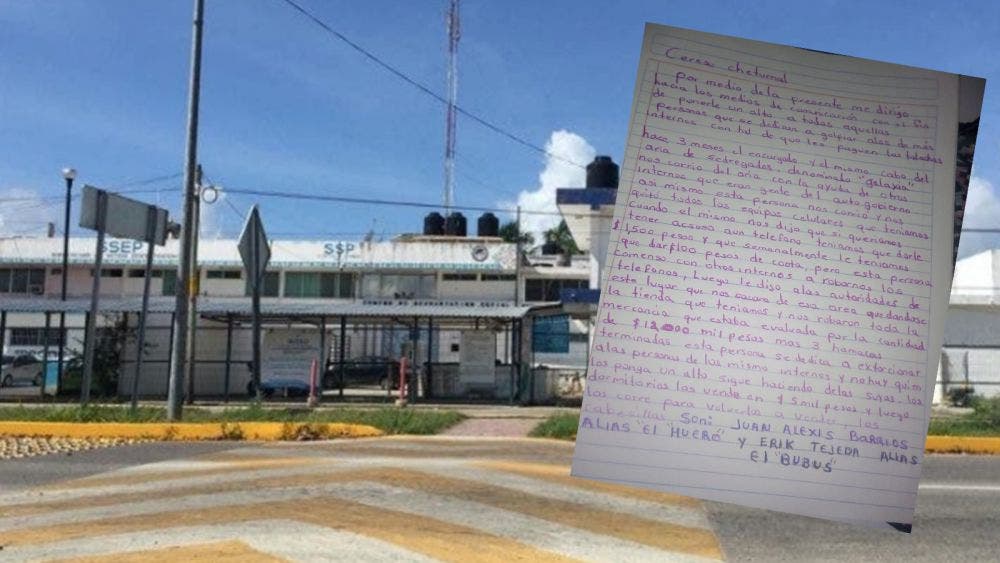 SSEP
SSP
Cereso chetumal
Por medio de la presente me dirijo
hacia los medios de comunicación con el fin
de ponerle un alto a todas aquellas
personas que se dedican a golpiar alos de más
internos con tal de que les paguen las talachas
hace 3 meses el encargado y el mismo cabo del
aria de sedregados, denominado "galaxia"
nos corrio del aria con la ayuda de otros
internos que eran gente del autogobierno
asi mismo esta persona nos corrio y nos
quitó todos los equipos celulares que teniamos
cuando el mismo nos dijo que si queriamos
tener acseso aun telefono teniamos que darle
$1,500 pesos y que semanalmente le teniamos
que dar $100 pesos de cuota, pero esta persona
comenso con otros internos a robarnos los
telefonos, luego le dijo alas autoridades de
este lugar que nos sacara de esa area quedandose
la tienda que teniamos y nos robaron toda la
mercancia que estaba evaluada por la cantidad
de $12,000 mil pesos mas 3 hamacas
terminadas esta persona se dedica a extorcionar
alas personas de los mismo internos y no hay quim
los ponga un alto sigue haciendo delas suyas, los
dormitorios las vende en $5 mil pesos y luego
los corre para volverlo a vender, los
cabesillas Son: JUAN ALEXIS BARRIOS
ALIAS "El "HUERO" y ERIK TEJEDA ALIAS
El "BUBUS"